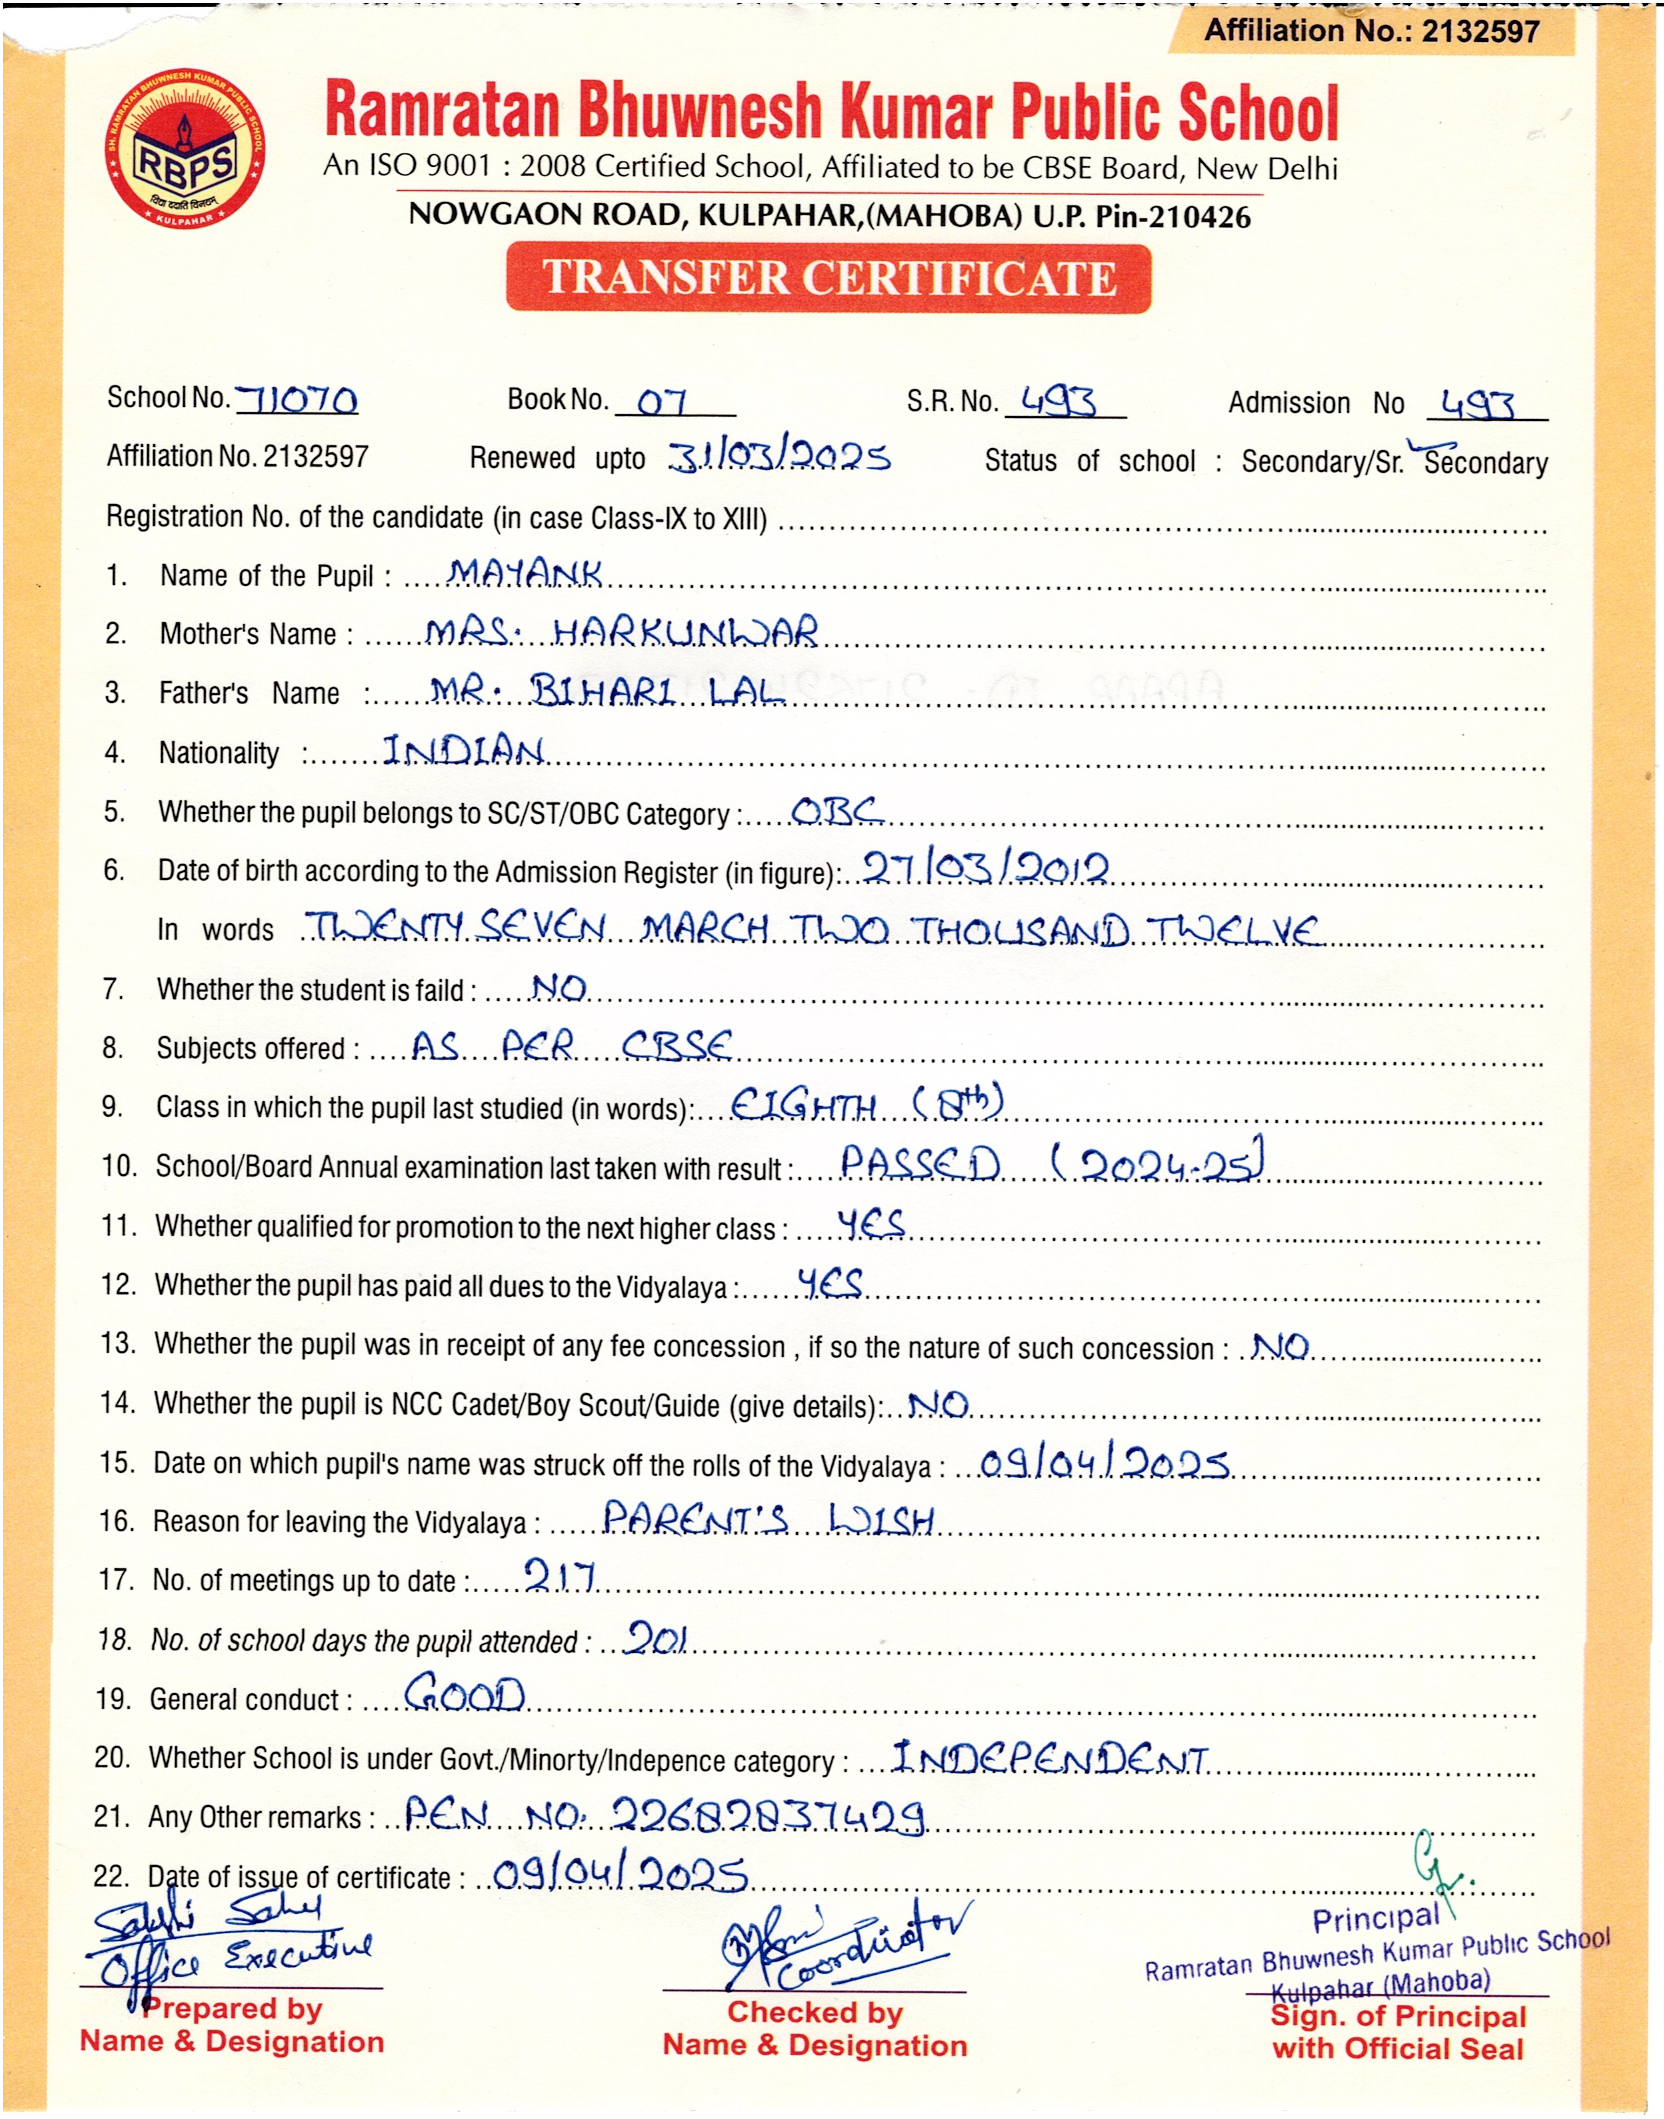 Affiliation No.: 2132597
SH. RAMRATAN BHUWNESH KUMAR PUBLIC SCHOOL
RBPS
विद्या ददाति विनयम्
★ KULPAHAR ★
Ramratan Bhuwnesh Kumar Public School
An ISO 9001 : 2008 Certified School, Affiliated to be CBSE Board, New Delhi
NOWGAON ROAD, KULPAHAR,(MAHOBA) U.P. Pin-210426
TRANSFER CERTIFICATE
School No. 71070 Book No. 07 S.R. No. 493 Admission No 493
Affiliation No. 2132597 Renewed upto 31/03/2025 Status of school : Secondary/Sr. Secondary
Registration No. of the candidate (in case Class-IX to XIII)
1. Name of the Pupil : MAYANK
2. Mother's Name : MRS. HARKUNWAR
3. Father's Name : MR. BIHARI LAL
4. Nationality : INDIAN
5. Whether the pupil belongs to SC/ST/OBC Category : OBC
6. Date of birth according to the Admission Register (in figure): 27/03/2012
In words TWENTY SEVEN MARCH TWO THOUSAND TWELVE
7. Whether the student is faild : NO
8. Subjects offered : AS PER CBSE
9. Class in which the pupil last studied (in words): EIGHTH (8th)
10. School/Board Annual examination last taken with result : PASSED (2024-25)
11. Whether qualified for promotion to the next higher class : YES
12. Whether the pupil has paid all dues to the Vidyalaya : YES
13. Whether the pupil was in receipt of any fee concession , if so the nature of such concession : NO
14. Whether the pupil is NCC Cadet/Boy Scout/Guide (give details): NO
15. Date on which pupil's name was struck off the rolls of the Vidyalaya : 09/04/2025
16. Reason for leaving the Vidyalaya : PARENT'S WISH
17. No. of meetings up to date : 217
18. No. of school days the pupil attended : 201
19. General conduct : GOOD
20. Whether School is under Govt./Minorty/Indepence category : INDEPENDENT
21. Any Other remarks : PEN NO. 22682837429
22. Date of issue of certificate : 09/04/2025
Sakshi Sahu
Office Executive
Coordinator
Principal
Ramratan Bhuwnesh Kumar Public School
Kulpahar (Mahoba)
Prepared by Checked by Sign. of Principal
Name & Designation Name & Designation with Official Seal